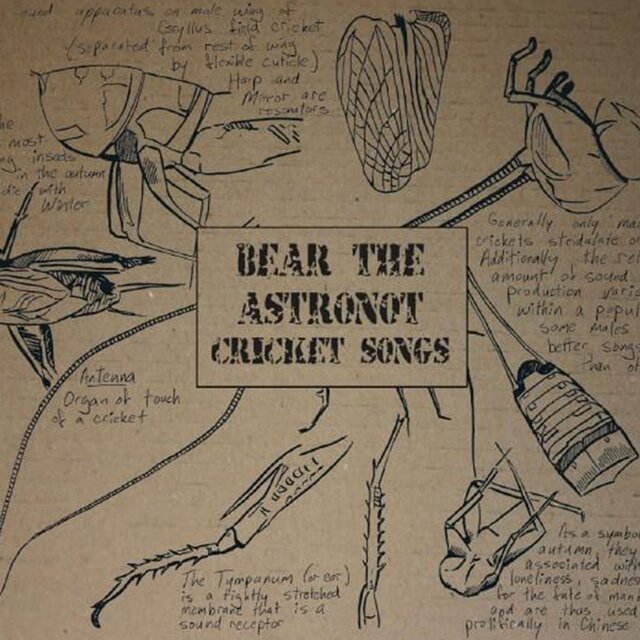 ound apparatus on male wing of
Gryllus field cricket
(separated from rest of wing
by flexible cuticle)
Harp and
Mirror are
resonators
he
most
ng insects
in the autumn
die with
Winter
Generally only ma
crickets stridulate o
Additionally the rel
amount of sound
production vari
within a popul
some males
better songs
than ot
BEAR THE
ASTRONOT
CRICKET SONGS
Antenna
Organ of touch
of a cricket
The Tympanum (or ear)
is a tightly stretched
membrane that is a
sound receptor
As a symbo
autumn, they
associated with
loneliness, sadnes
for the fate of man
and are thus used
prolifically in Chinese